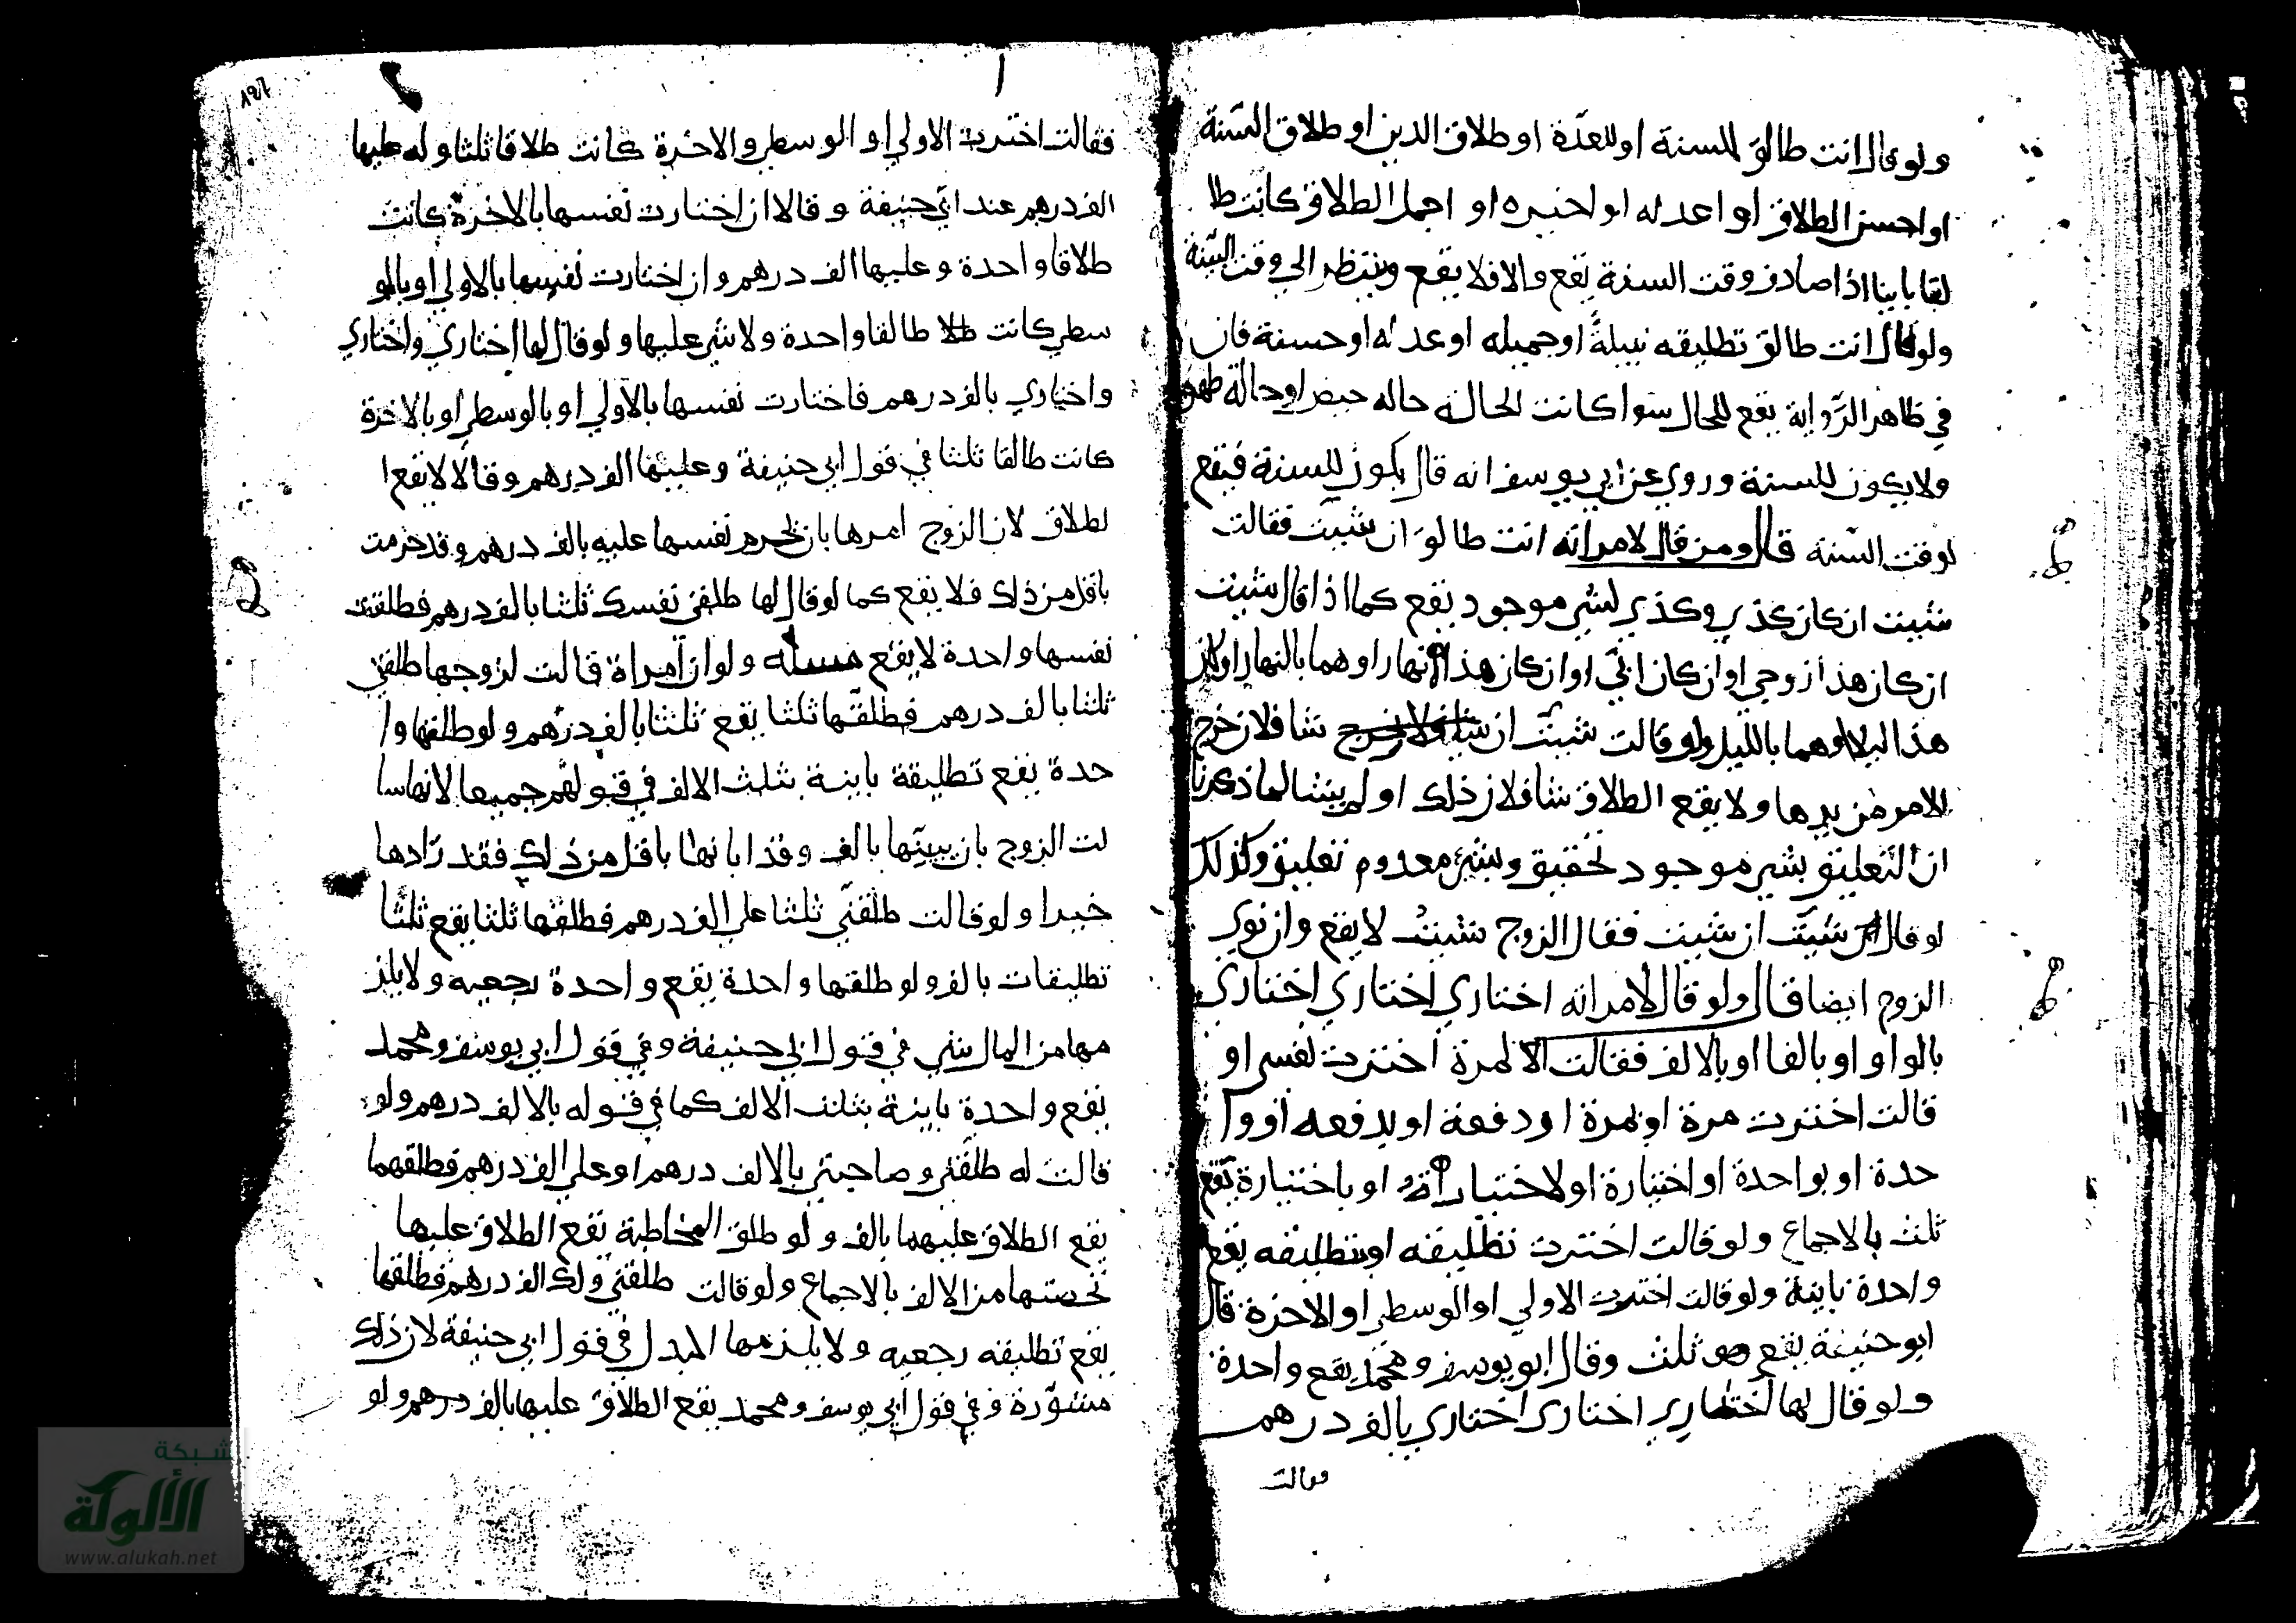 ولو قال انت طالق للسنة او للعدّة او طلاق الدين او طلاق السّنة
او احسن الطلاق او اعدله او اخيره او اجمل الطلاق كانت طا
لقا باينا اذا صادف وقت السنة يقع والا فلا يقع وينتظر الي وقت السّنة
ولو قال انت طالق تطليقه نبيلةً او جميله او عدله او حسنة فان
في ظاهر الرّواية يقع للحال سوا كانت الحاله حاله حيض او حالة طهر
ولا يكون للسنة وروي عن ابي يوسف انه قال يكون للسنة فيقع
لوقت السّنة قال ومن قال لامراته انت طالق ان شيت فقالت
شيت ان كان كذي وكذي لشي موجود يقع كما اذا قال شيت
ان كان هذا زوجي او ان كان ابي او ان كان هذا نهارا وهما بالنهار او كان
هذا ليلا وهما بالليل ولو قالت شيت ان شا فلان خرج
الامر من يدها ولا يقع الطلاق شا فلان ذلك او لم يشا لما ذكرنا
ان التعليق بشي موجود تحقيق وبشي معدوم تعليق وكذلك
لو قال شيت ان شيت فقال الزوج شيت لا يقع وان نوي
الزوج ايضا قال ولو قال لامراته اختاري اختاري اختاري
بالواو او بالفا او بالالف فقالت المرة اخترت نفسي او
قالت اخترت مرة او بمرة او دفعة او بدفعه او وا
حدة او بواحدة او اختيارة او الاختيارة او باختيارة يقع
ثلث بالاجماع ولو قالت اخترت تطليقه او بتطليقه يقع
واحدة باينة ولو قالت اخترت الاولي او الوسطي او الاخرة قال
ابو حنيفة يقع ثلث وقال ابو يوسف ومحمد يقع واحدة
ولو قال لها اختاري اختاري اختاري بالف درهم
فقالت
١٩٦
فقالت اخترت الاولي او الوسطي والاخرة كانت طلاقا ثلثا وله عليها
الف درهم عند ابي حنيفة وقالا ان اختارت نفسها بالاخرة كانت
طلاقا واحدة وعليها الف درهم وان اختارت نفسها بالاولي او بالو
سطي كانت طالقا واحدة ولا شي عليها ولو قال لها اختاري واختاري
واختياري بالف درهم فاختارت نفسها بالاولي او بالوسطي او بالاخرة
كانت طالقا ثلثا في قول ابي حنيفة وعليها الف درهم وقالا لا يقع ا
لطلاق لان الزوج امرها بان تحرم نفسها عليه بالف درهم وقد حرمت
باقل من ذلك فلا يقع كما لو قال لها طلقي نفسك ثلثا بالف درهم فطلقت
نفسها واحدة لا يقع مسله ولو ان امراة قالت لزوجها طلقني
ثلثا بالف درهم فطلقها ثلثا يقع ثلثا بالف درهم ولو طلقها وا
حدة يقع تطليقة باينة بثلث الالف في قولهم جميعا لانها سا
لت الزوج بان يبينها بالف وقد ابانها باقل من ذلك فقد زادها
خيرا ولو قالت طلقني ثلثا علي الف درهم فطلقها ثلثا يقع ثلثا
تطليقات بالف ولو طلقها واحدة يقع واحدة رجعيه ولا يلز
مها من المال شي في قول ابي حنيفة وفي قول ابي يوسف ومحمد
يقع واحدة باينة بثلث الالف كما في قوله بالالف درهم ولو
قالت له طلقني وصاحبتي بالالف درهم او علي الف درهم فطلقهما
يقع الطلاق عليهما بالف ولو طلق المخاطبة يقع الطلاق عليها
بحصتها من الالف بالاجماع ولو قالت طلقني ولك الف درهم فطلقها
يقع تطليقه رجعيه ولا يلزمها البدل في قول ابي حنيفة لان ذلك
مشورة وفي قول ابي يوسف ومحمد يقع الطلاق عليها بالف درهم ولو
شبكة
الألوكة
www.alukah.net